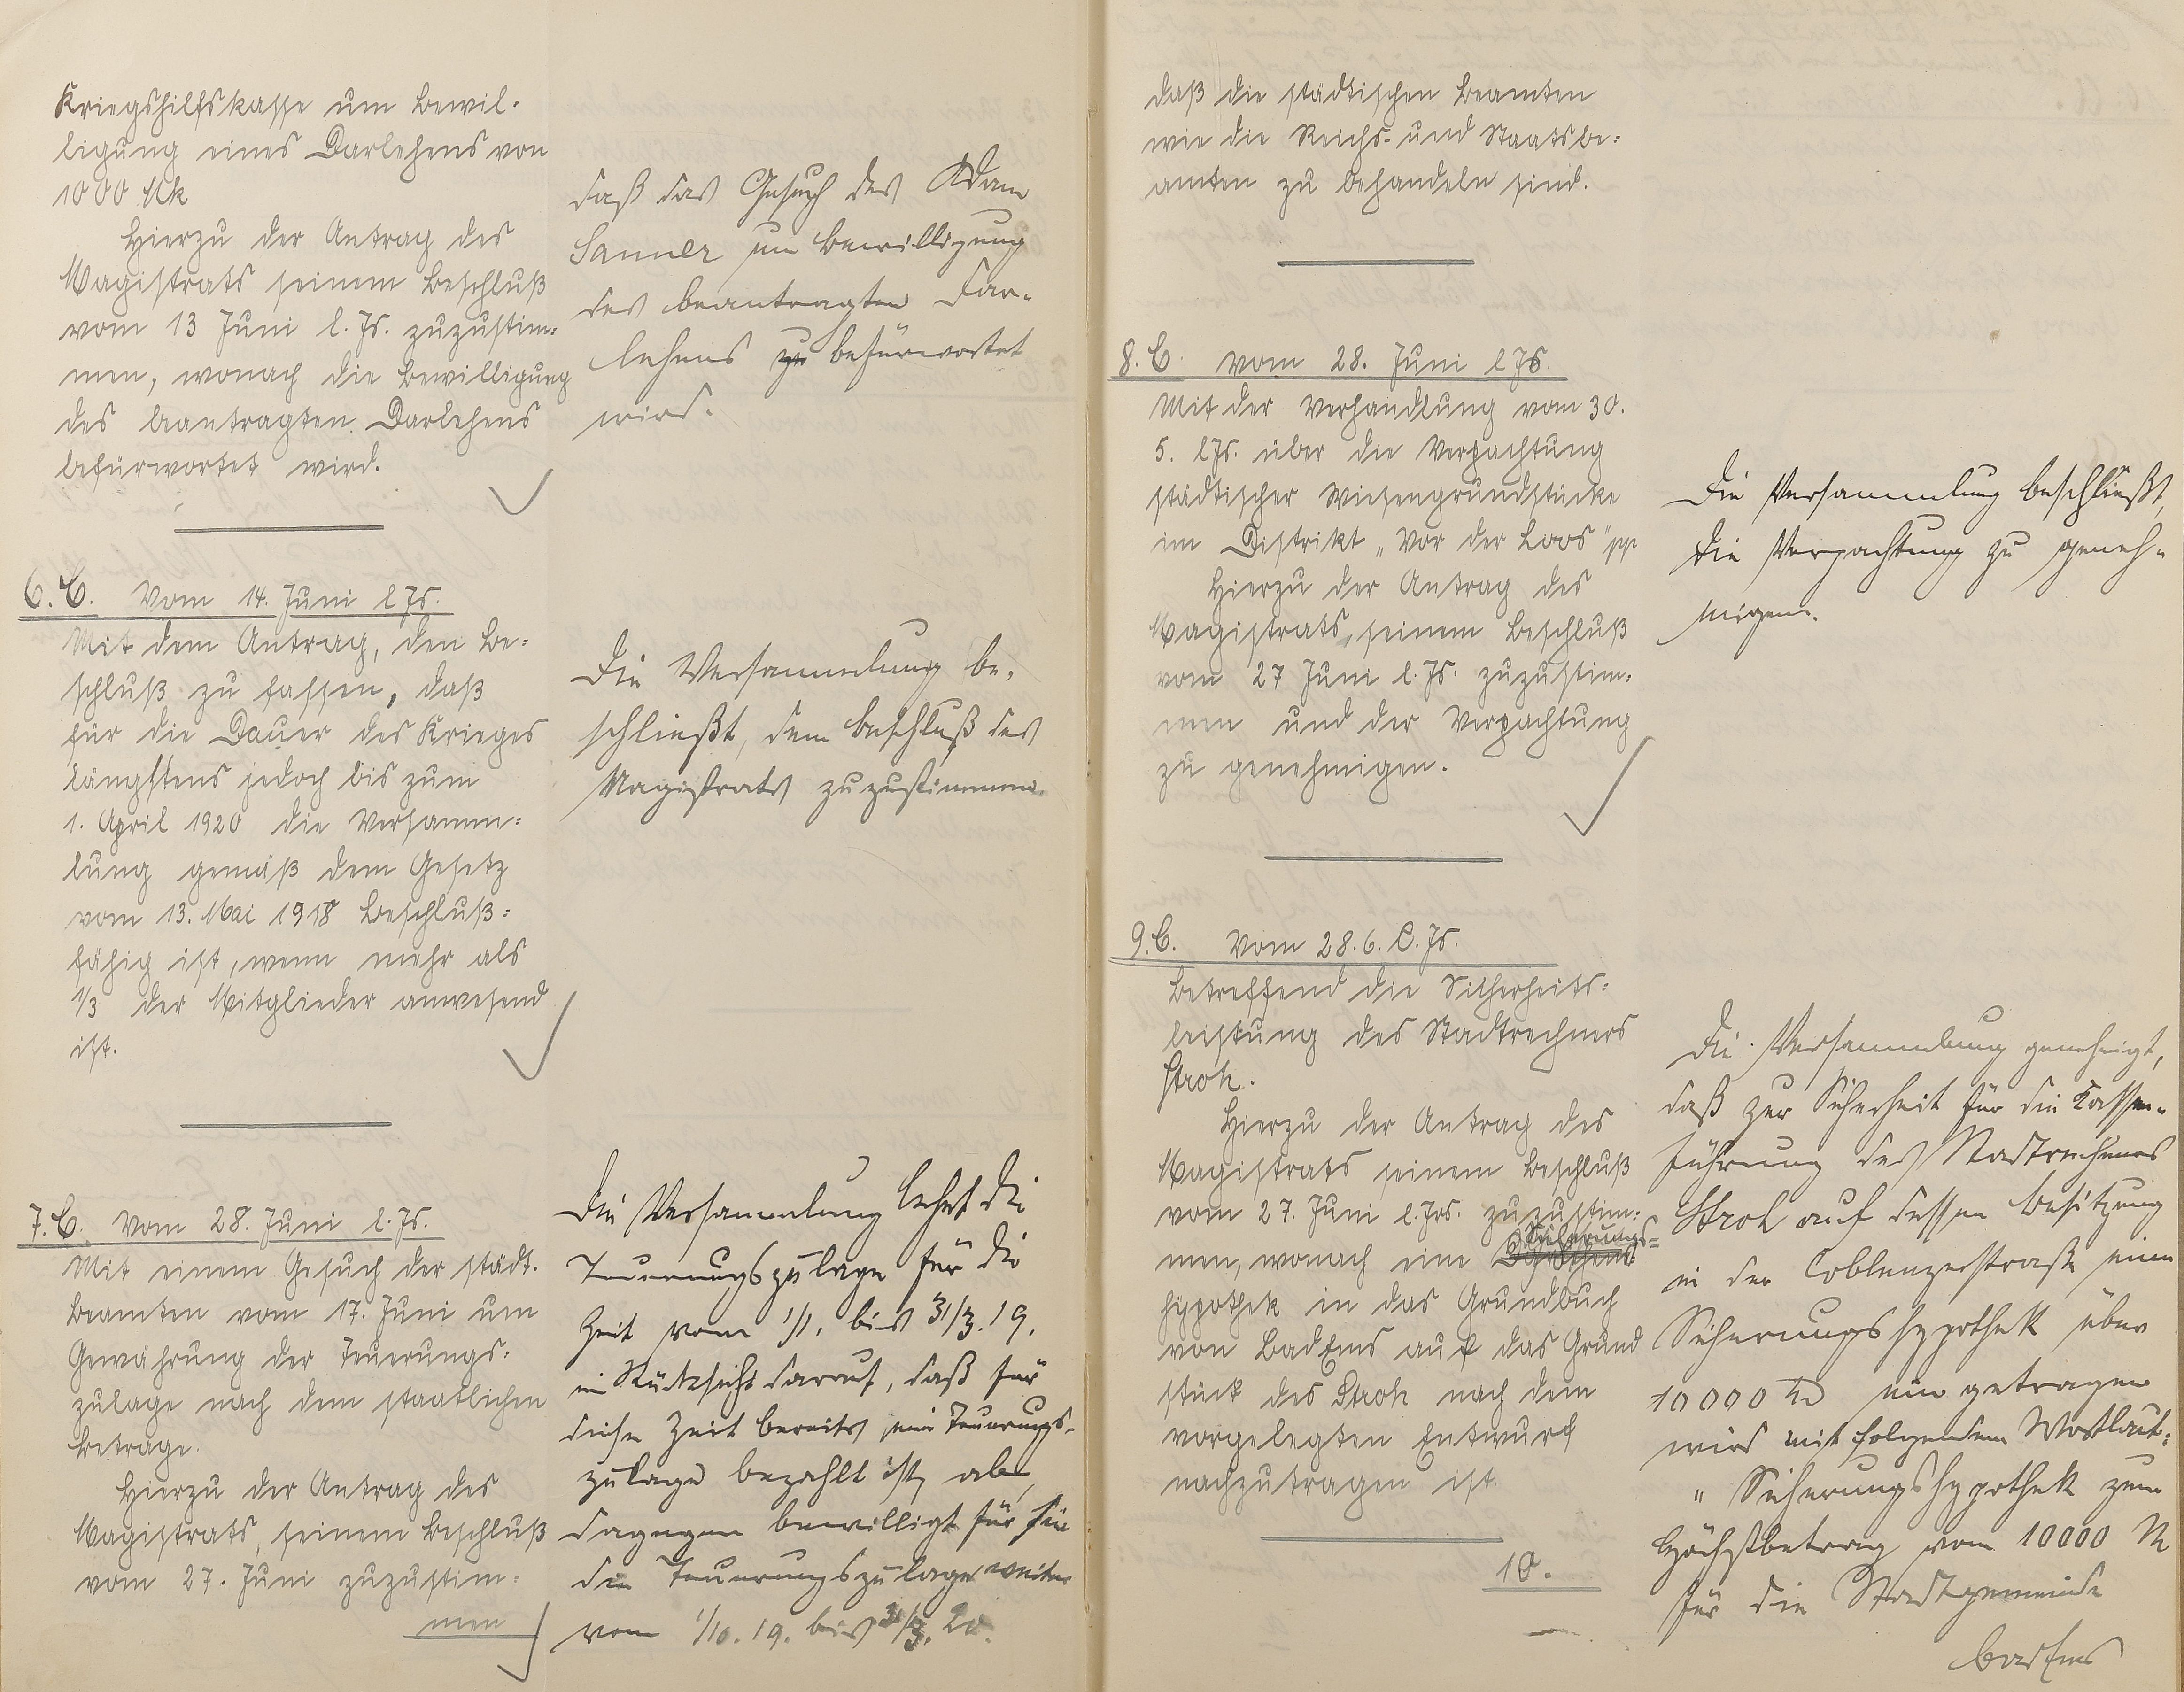 Kriegshilfskasse um Bewil-
ligung eines Darlehens von
1000 Mk
Hierzu der Antrag des
Magistrats seinem Beschluß
vom 13 Juni l. Js. zuzustim-
men, wonach die Bewilligung
des beantragten Darlehens
befürwortet wird.
daß das Gesuch des Adam
Sanner um Bewilligung
des beantragten Dar-
lehens zu befürwortet
wird.
6. C. Vom 14. Juni l Js.
Mit dem Antrag, den Be-
schluß zu fassen, daß
für die Dauer des Krieges
längstens jedoch bis zum
1. April 1920 die Versamm-
lung gemäß dem Gesetz
vom 13. Mai 1918 beschluß-
fähig ist, wenn mehr als
1/3 der Mitglieder anwesend
ist.
Die Versammlung be-
schließt, dem Beschluß des
Magistrats zuzustimmen.
7. C. Vom 28. Juni l. Js.
Mit einem Gesuch der städt.
Beamten vom 17. Juni um
Gewährung der Teuerungs-
zulage nach dem staatlichen
Betrage.
Hierzu der Antrag des
Magistrats, seinem Beschluß
vom 27. Juni zuzustim-
men
Die Versammlung lehnt die
Teuerungszulage für die
Zeit vom 1/1. bis 31/3. 19.
in Rücksicht darauf, daß für
diese Zeit bereits eine Teuerungs-
zulage bezahlt ist, ab,
dagegen bewilligt für sie
die Teuerungszulage weiter
vom 1/10. 19. bis 31/3. 20.
daß die städtischen Beamten
wie die Reichs- und Staatsbe-
amten zu behandeln sind.
8. C. vom 28. Juni l Js.
Mit der Verhandlung vom 30.
5. l Js. über die Verpachtung
städtischer Wiesengrundstücke
im Distrikt „Vor der Loos" pp
Hierzu der Antrag des
Magistrats, seinem Beschluß
vom 27 Juni l. Js. zuzustim-
men und der Verpachtung
zu genehmigen.
Die Versammlung beschließt,
die Verpachtung zu geneh-
migen.
9. C. Vom 28. 6. l. Js.
Betreffend die Sicherheits-
leistung des Stadtrechners
Stroh.
Hierzu der Antrag des
Magistrats seinem Beschluß
vom 27. Juni l. Jrs. zuzustim-
men, wonach eine Sicherungs-
hypothek in das Grundbuch
von Bad Ems auf das Grund
stück des Stroh nach dem
vorgelegten Entwurf
nachzutragen ist.
Die Versammlung genehmigt,
daß zur Sicherheit für die Kassen-
führung des Stadtrechners
Stroh auf dessen Besitzung
in der Coblenzerstraße eine
Sicherungshypothek über
10000 M eingetragen
wird mit folgendem Wortlaut:
„Sicherungshypothek zum
Höchstbetrag von 10000 M
für die Stadtgemeinde
Bad Ems
10.